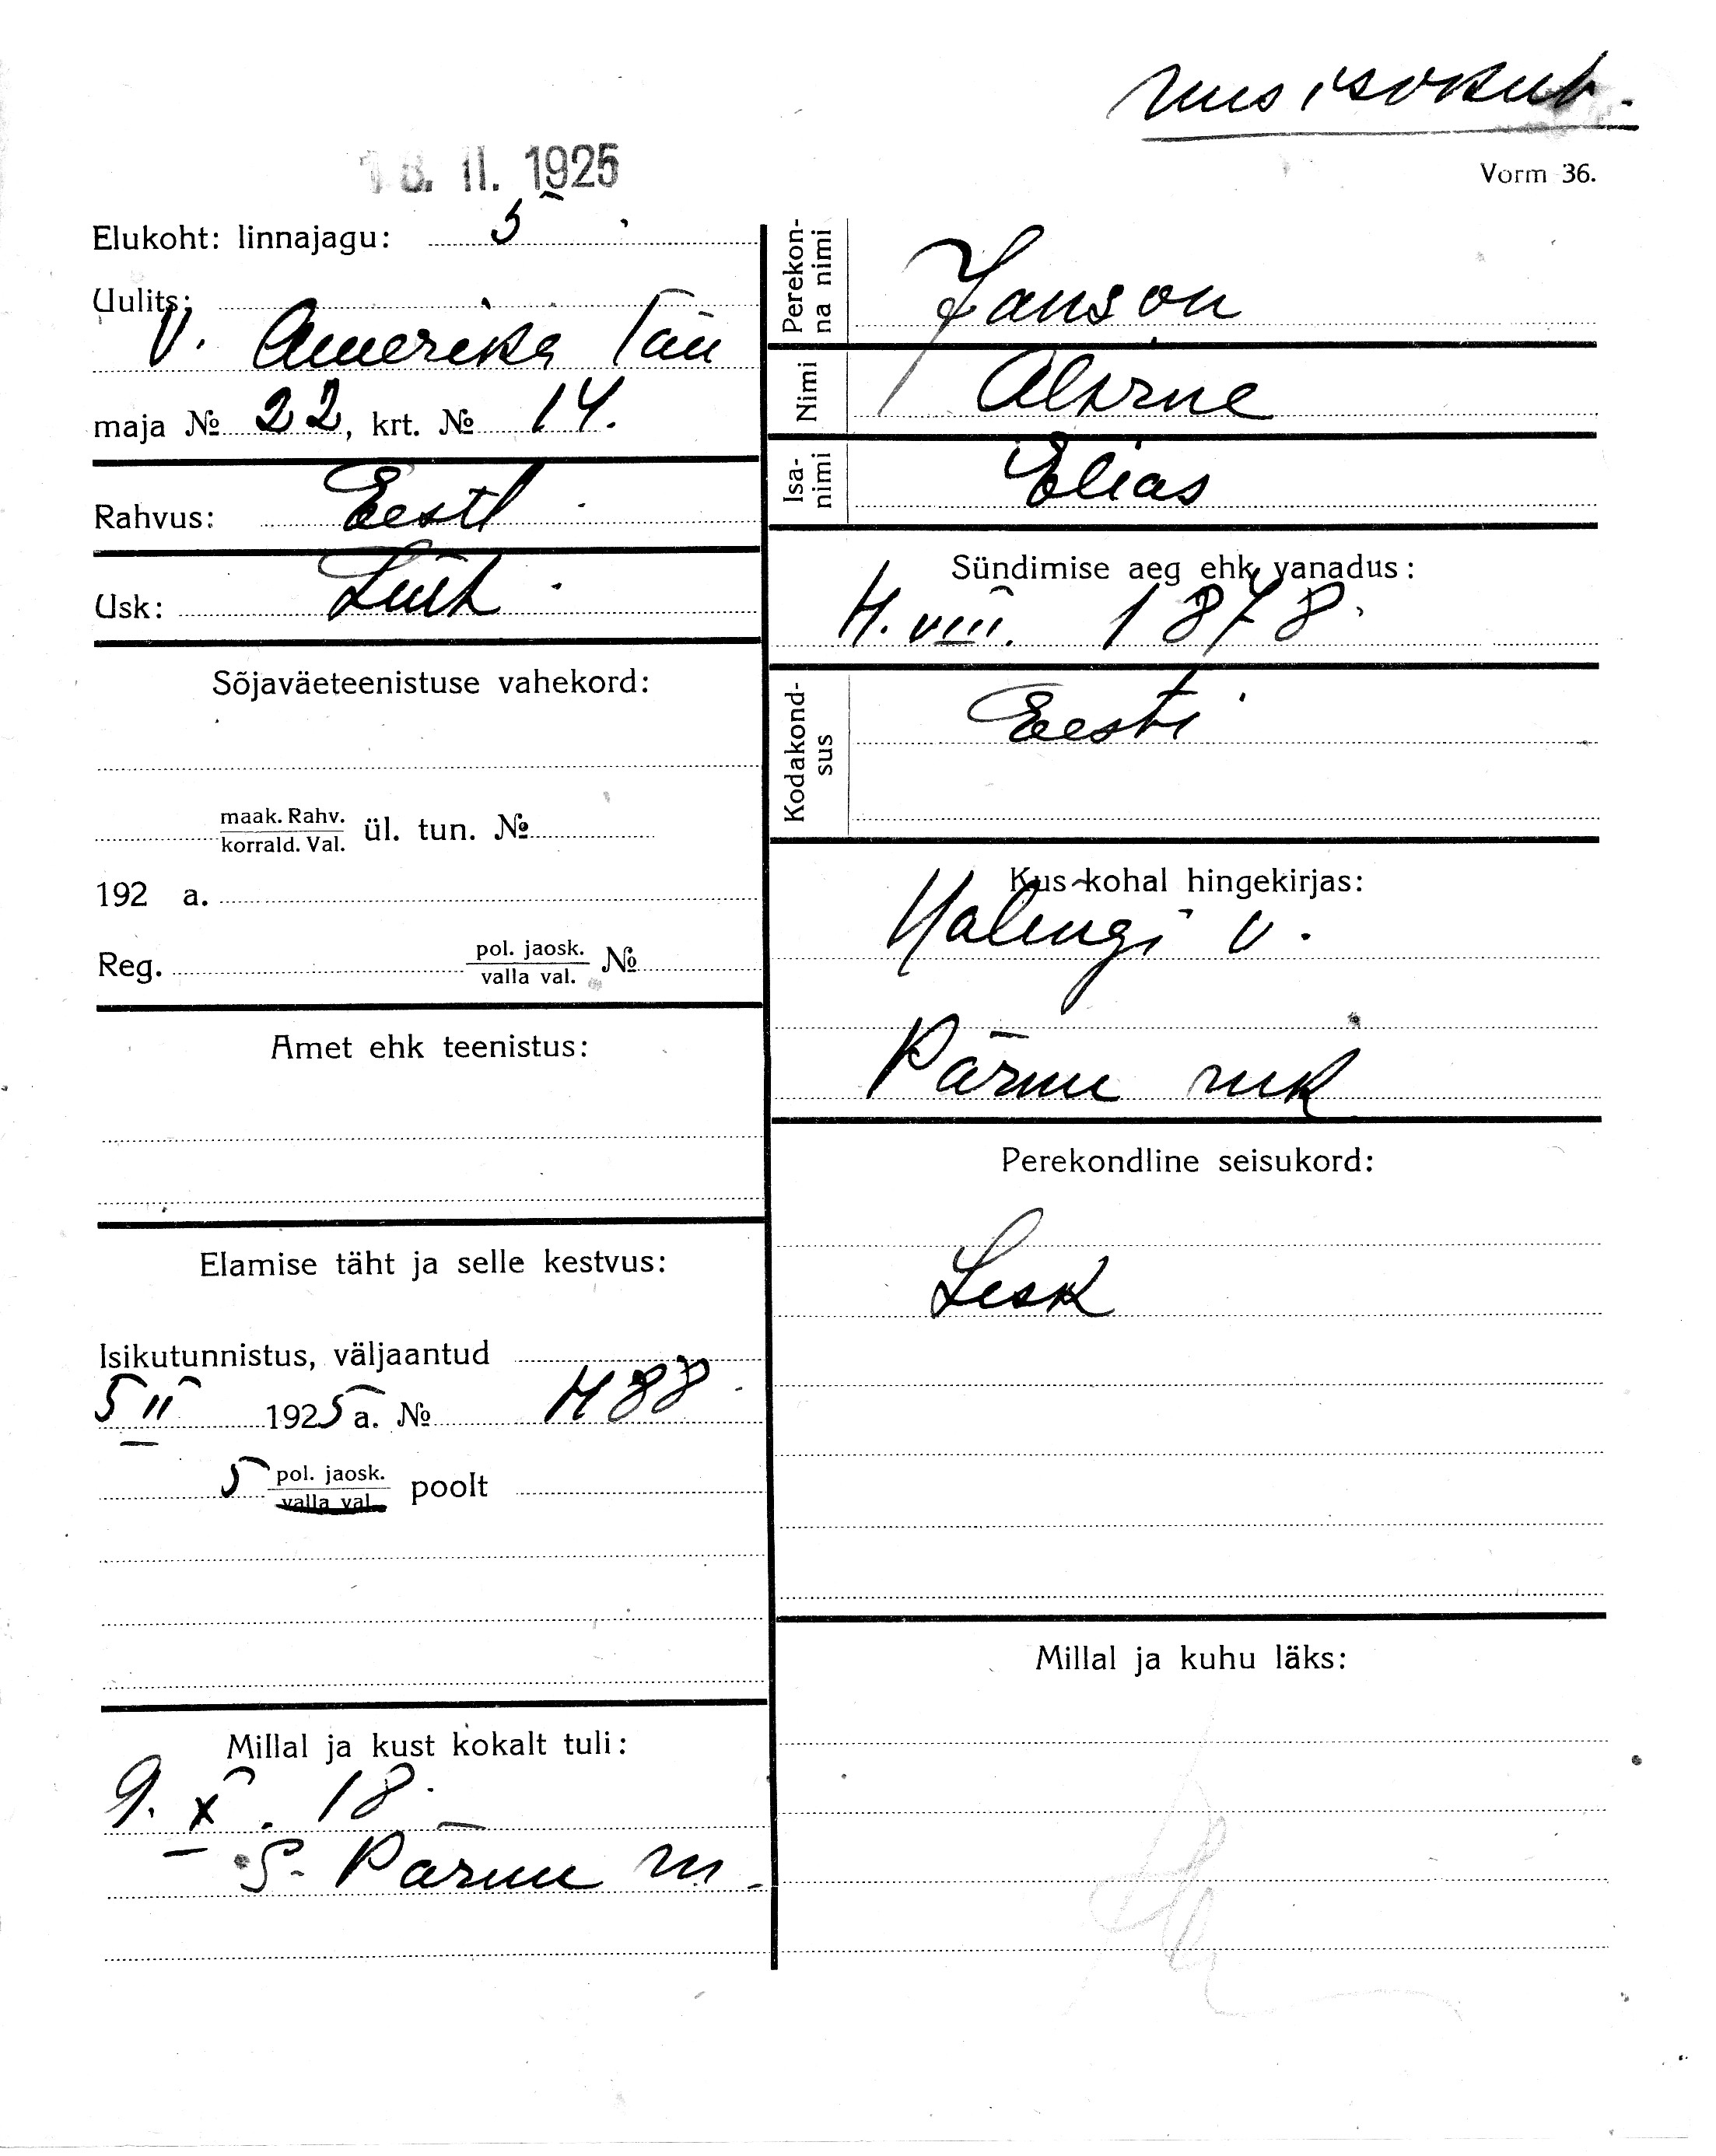 uus isokut.
18. II. 1925
Vorm 36.
Elukoht: linnajagu: 5
Uulits:
V. Amerika tän
maja № 22, krt. № 14.
Rahvus: Eesti
Usk: Luth
Sõjaväeteenistuse vahekord:
maak. Rahv.
korrald. Val. ül. tun. №
192 a.
Reg. pol. jaosk.
valla val. №
Amet ehk teenistus:
Elamise täht ja selle kestvus:
Isikutunnistus, väljaantud
5 II 1925 a. № 488
5 pol. jaosk.
valla val. poolt
Millal ja kust kokalt tuli:
9. X. 18.
S. Pärnu m.
Perekon-
na nimi Janson
Nimi
Isa-
nimi Elias
Sündimise aeg ehk vanadus:
4. VIII. 1878.
Kodakond-
sus Eesti
Kus kohal hingekirjas:
v.
Pärnu mk
Perekondline seisukord:
Lesk
Millal ja kuhu läks: